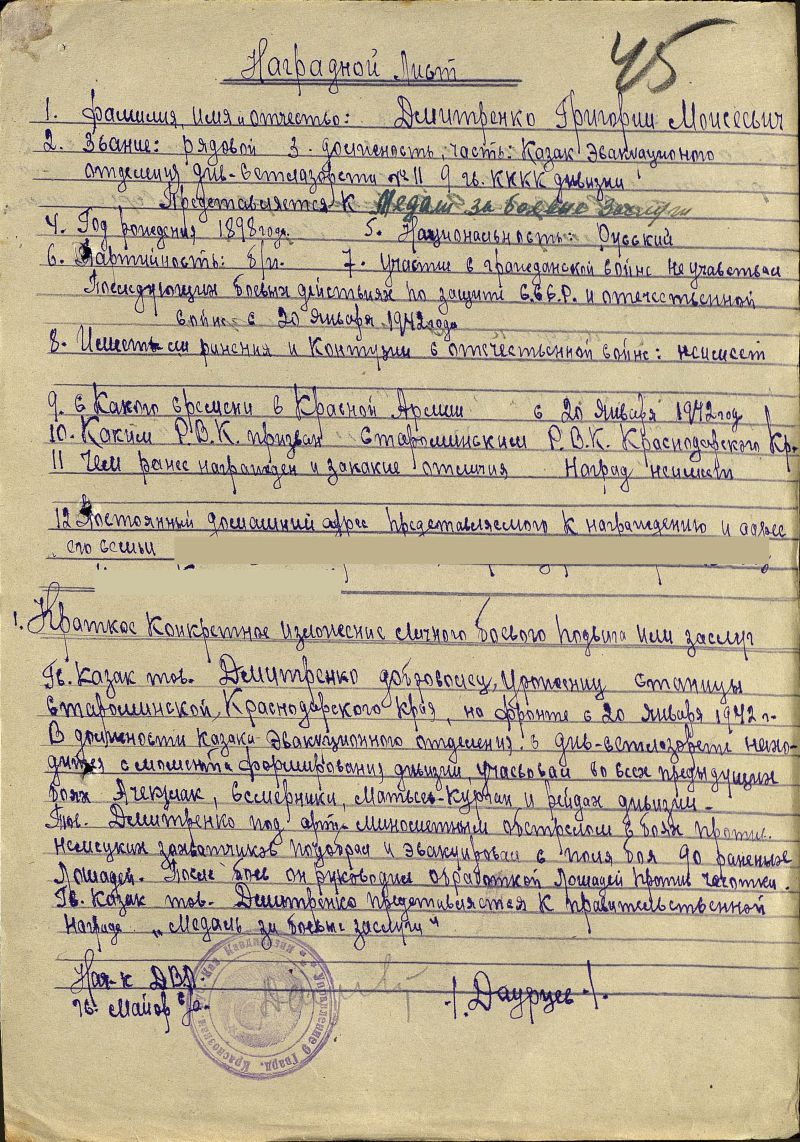 45
Наградной Лист
1. Фамилия имя и отчество: Дмитренко Григорий Моисеевич
2. Звание: рядовой 3. должность, часть: Казак Эвакуационого
отделения див-ветлазорета № 11 9 гв. ККК дивизии
Представляется к Медали за боевые заслуги
4. Год рождения 1898 года. 5. Национальность: Русский
6. Партийность: б/п. 7. участие в гражданской войне не учавствал
Последующих боевых действиях по защите С.С.С.Р. и отечественной
войне с 20 Января 1942 года
8. Имеет-ли ранения и Контузии в отечественной войне: неимеет
9. с Какого времени в Красной Армии с 20 Января 1942 год
10. Каким Р.В.К. призван Староминским Р.В.К. Краснодарского Кр.
11 Чем ранее награжден и закакие отличия Наград неимеет
12 Постоянный домашний адрес представляемого к награждению и адрес
его семьи
1. Краткое Конкретное изложение личного боевого подвига или заслуг
Гв. Казак тов. Дмитренко доброволец, Уроженец станицы
Староминской, Краснодарского Края, на фронте с 20 Января 1942 г.
В должности казака Эвакуационного отделения в див-ветлазорете нахо-
дится с момента формирования дивизии, участвовал во всех предыдущих
боях Ачекулак, Весмерники, Матвеев-Курган и рейдах дивизии.
Тов. Дмитренко под арт-минометным обстрелом в боях против
немецких захватчиков подобрал и эвакуировал с поля боя 90 раненых
Лошадей. После боев он руководил обработкой Лошадей против чесотки.
Гв. Казак тов. Дмитренко представляется к правительственной
награде „Медаль за боевые заслуги"
Нач-к ДВЛ.
гв. Майор в/с. -/. Даурцев ./.
Управление 9 Гвард. Краснознам. Каз Кавдивизии